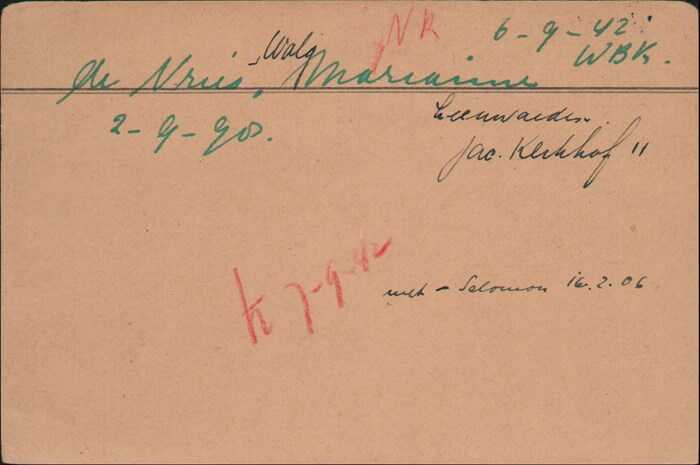 NR 6-9-42
WBK.
de Vries, -Walg Marianne
2-9-90.
Leeuwarden.
Jac. Kerkhof 11
met - Salomon 16.2.06
7-9-42